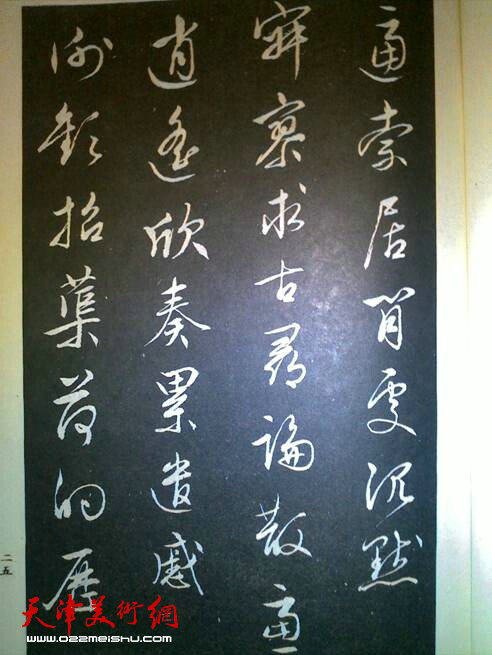 逼索居閒處沉默
寂寥求古尋論散慮
逍遙欣奏累遣慼
謝歡招蕖荷的歷
二五
天津美術網
www.022meishu.com